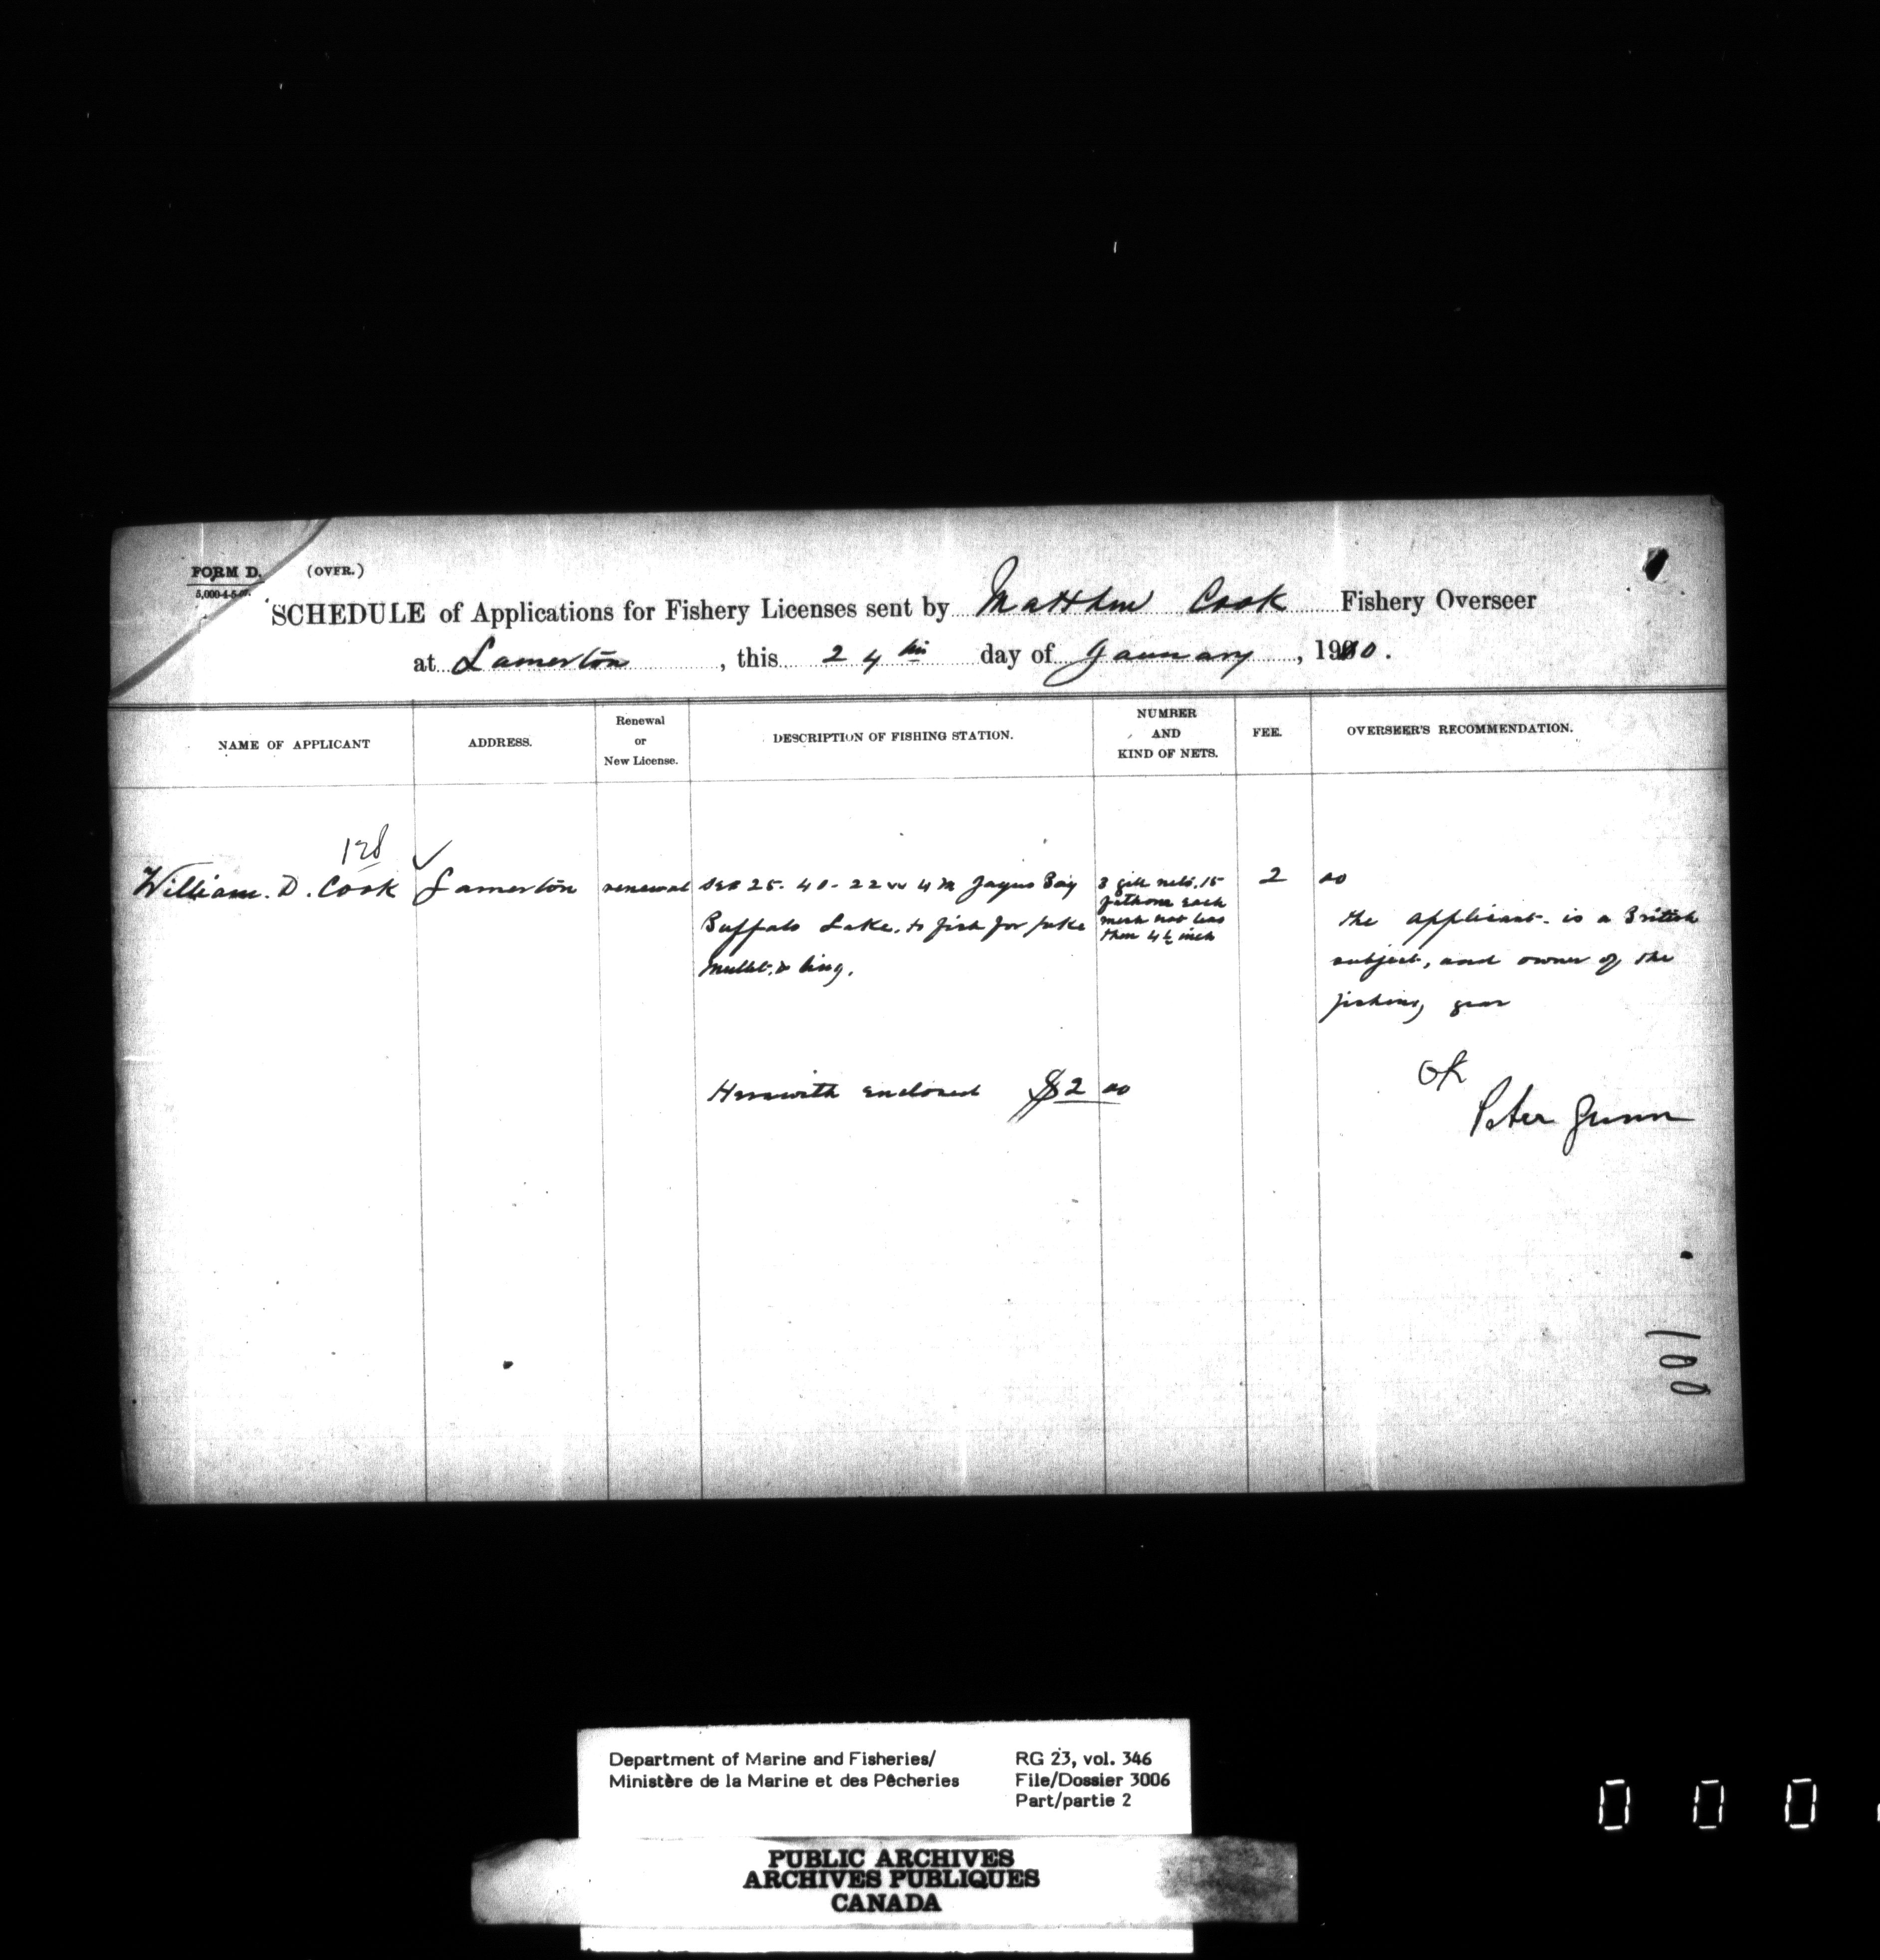 FORM D. (OVER.)
5,000-4-5-
SCHEDULE of Applications for Fishery Licenses sent by Matthew Cook Fishery Overseer
at Lamerton, this 24th day of January, 1910.
NAME OF APPLICANT
ADDRESS.
Renewal
or
New License.
DESCRIPTION OF FISHING STATION.
NUMBER
AND
KIND OF NETS.
FEE.
OVERSEER'S RECOMMENDATION.
128
William. D. Cook
Lamerton
renewal
Sec 25. 40 - 22 w 4 M Bay
Buffalo Lake. to fish for
mullet, & ling.
3 gill nets, 15
fathoms each
mesh not less
than 4½ inch
2 00
the applicant is a British
subject, and owner of the
fishing gear
Herewith enclosed $2 00
OK
Peter Gunn
100
Department of Marine and Fisheries/
Ministère de la Marine et des Pêcheries
RG 23, vol. 346
File/Dossier 3006
Part/partie 2
PUBLIC ARCHIVES
ARCHIVES PUBLIQUES
CANADA
0 0 0